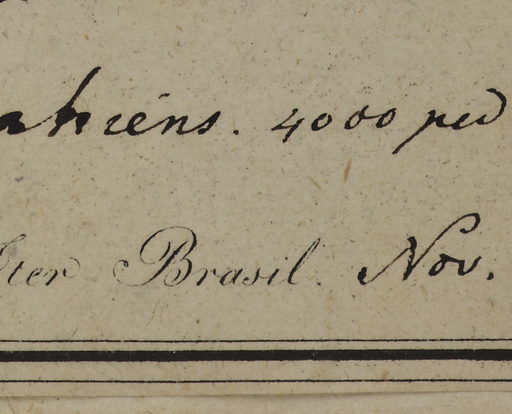 ahiéns. 4000 ped
Iter Brasil. Nov.